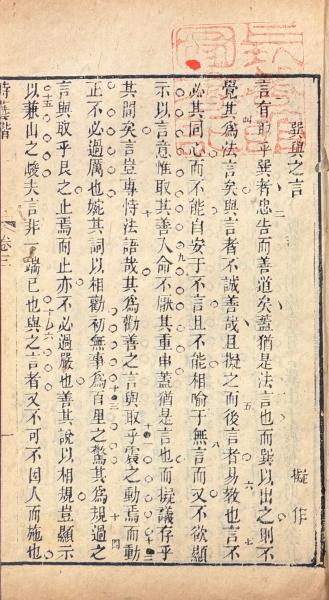 巽與之言
擬作
言有取乎巽者忠告而善道矣蓋猶是法言也而巽以出之則不
覺其為法言矣與言者不誠善哉且擬之而後言者易教也言不
必其同心而不能自安于不言且不能相喻于無言而又不欲顯
示以言意惟取其善入命不厭其重申蓋猶是言也而擬議存乎
其間矣言豈專恃法語哉其為勸善之言與取乎震之動焉而動
正不必過厲也婉其詞以相勸初無事為百里之驚其為規過之
言與取乎艮之止焉而止亦不必過嚴也善其說以相規豈顯示
以兼山之峻夫言非一端已也與之言者又不可不因人而施也
卷三